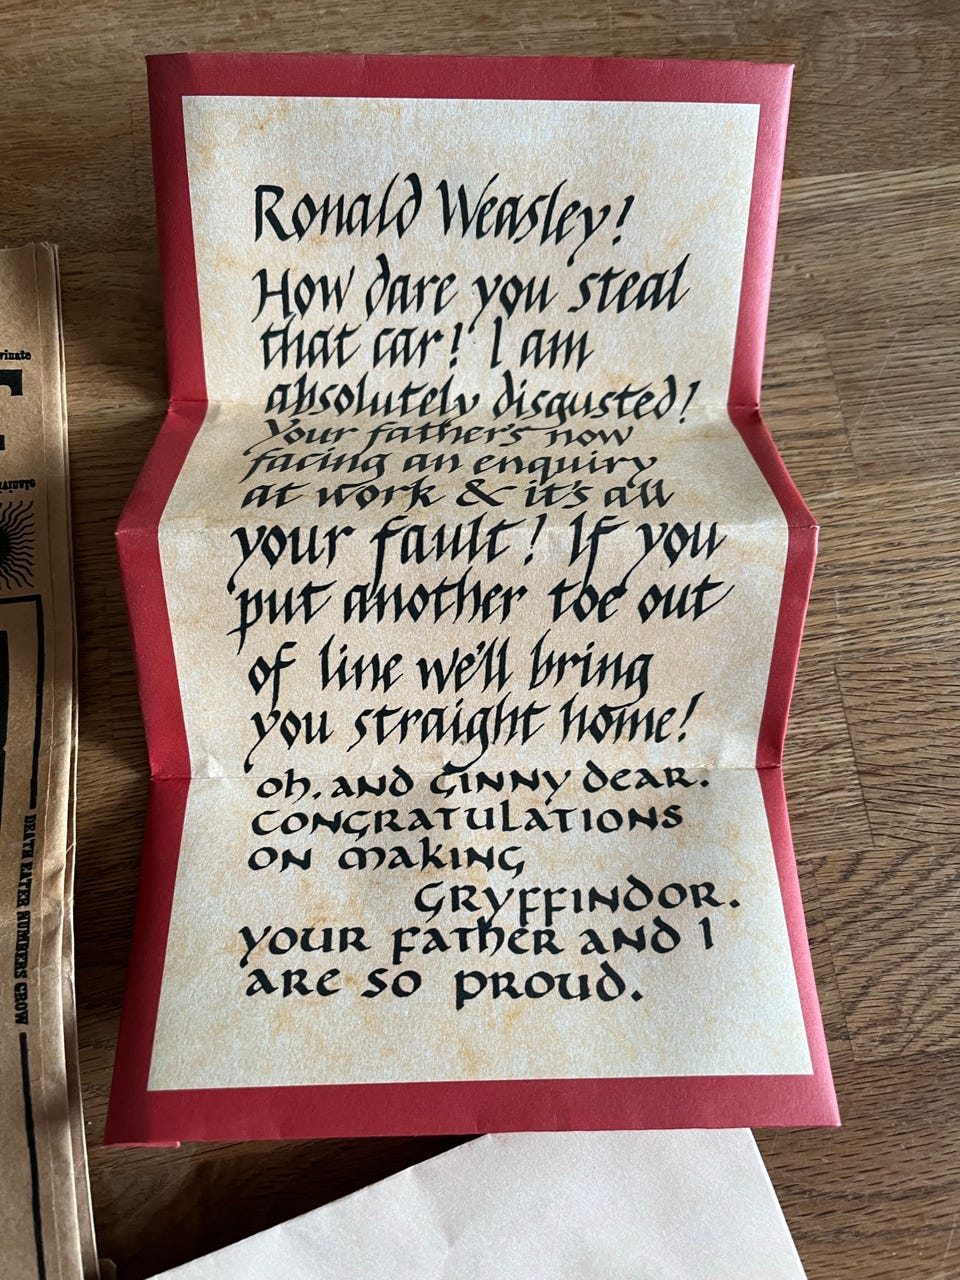 Ronald Weasley!
How dare you steal
that car! I am
absolutely disgusted!
Your father's now
facing an enquiry
at work & it's all
your fault! If you
put another toe out
of line we'll bring
you straight home!
oh, and Ginny dear.
Congratulations
on making
Gryffindor.
Your father and I
are so proud.
DEATH EATER NUMBERS GROW